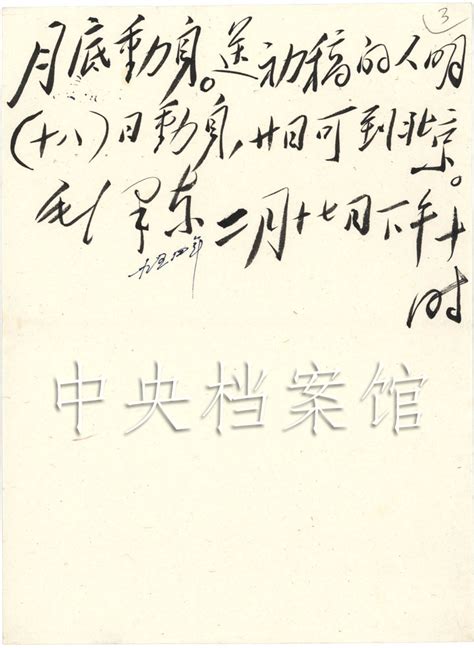 3
月底動身。送初稿的人明
(十八)日動身,廿日可到北京。
毛澤东 二月十七日下午十
时
一九五四年
中央档案馆